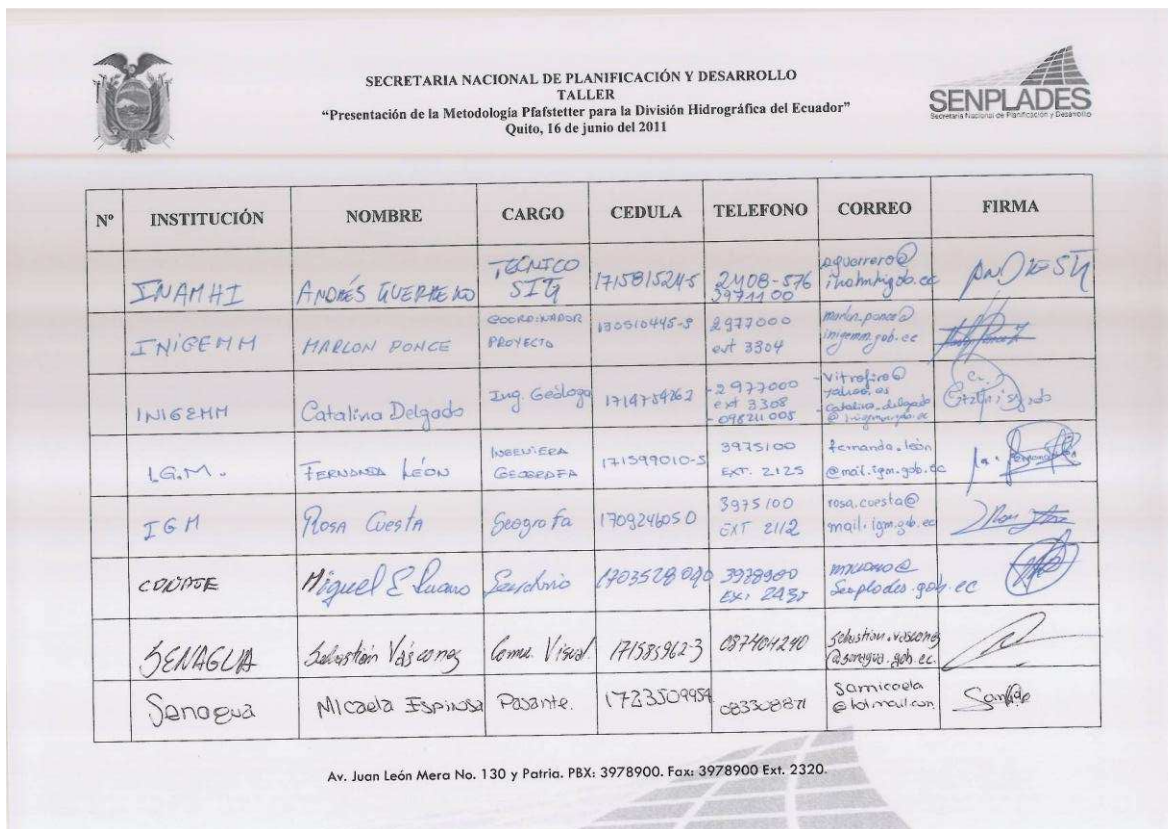 SECRETARIA NACIONAL DE PLANIFICACIÓN Y DESARROLLO
TALLER
“Presentación de la Metodología Pfafstetter para la División Hidrográfica del Ecuador”
Quito, 16 de junio del 2011
SENPLADES
Secretaría Nacional de Planificación y Desarrollo
Nº INSTITUCIÓN NOMBRE CARGO CEDULA TELEFONO CORREO FIRMA
INAMHI ANDRÉS GUERRERO TECNICO SIG 171581524-5 2408-576 3971100 aguerrero@
INIGEMM MARLON PONCE COORDINADOR PROYECTO 130510445-9 2977000 ext 3304 marlon.ponce@ inigemm.gob.ec
INIGEMM Catalina Delgado Ing. Geóloga -2977000 ext 3308 - 098211005 -vitrofiro@ yahoo.es -catalina.delgado
I.G.M. FERNANDA LEÓN INGENIERA GEOGRAFA 171599010-5 3975100 EXT. 2125 fernanda.león @mail.igm.gob.ec
IGM Rosa Cuesta Geografa 170924605 0 3975100 EXT 2112 rosa.cuesta@ mail.igm.gob.ec
Miguel E 3978900 Ext 2435 Senplades.gob.ec
SENAGUA Sebastián Vásconez Comu. Visual. 171585962-3 087404240 sebastian.vasconez @senagua.gob.ec.
Senagua Micaela Espinosa Pasante. 1723509954 083308871 Samicaela @hotmail.com
Av. Juan León Mera No. 130 y Patria. PBX: 3978900. Fax: 3978900 Ext. 2320.